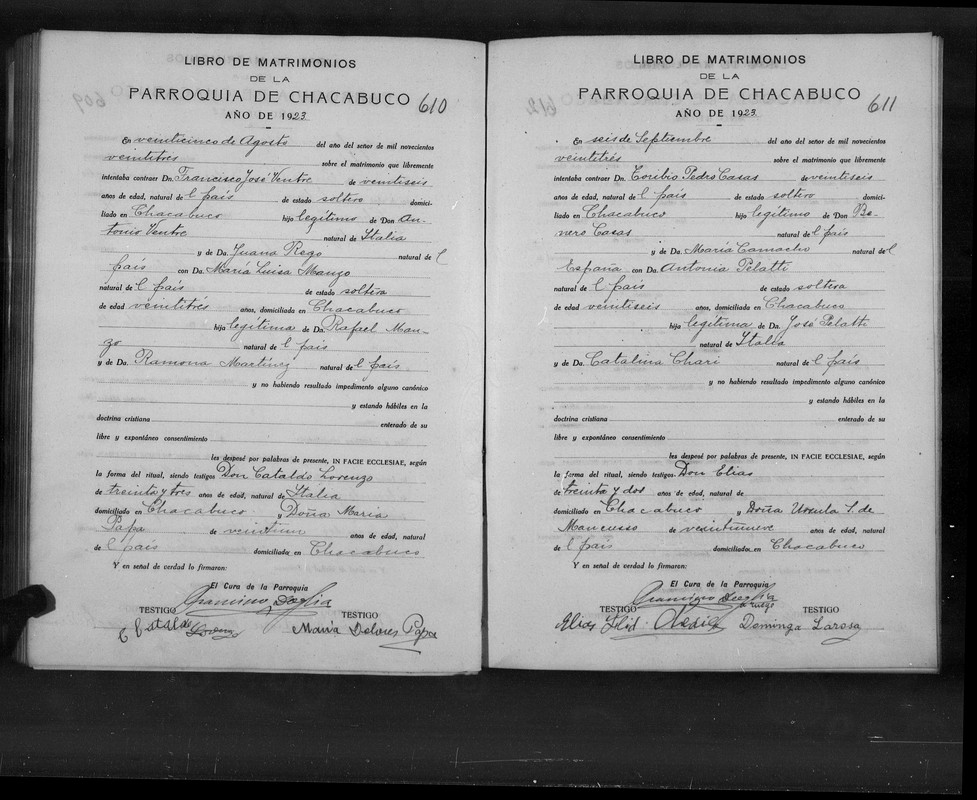 LIBRO DE MATRIMONIOS
DE LA
PARROQUIA DE CHACABUCO 610
AÑO DE 1923
En veinticinco de Agosto del año del señor de mil novecientos
veintitres sobre el matrimonio que libremente
intentaba contraer Dn. Francisco José Ventre de veintiseis
años de edad, natural del país de estado soltero domici-
liado en Chacabuco hijo legítimo de Don An-
tonio Ventre natural de Italia
y de Da. Juana Rego natural del
país con Da. María Luisa Manzo
natural del país de estado soltera
de edad veintitrés años, domiciliada en Chacabuco
hija legítima de Dn. Rafael Man-
zo natural del país
y de Da. Ramona Martínez natural del país
y no habiendo resultado impedimento alguno canónico
y estando hábiles en la
doctrina cristiana enterado de su
libre y expontáneo consentimiento
les desposé por palabras de presente, IN FACIE ECCLESIAE, según
la forma del ritual, siendo testigos Don Cataldo Lorenzo
de treinta y tres años de edad, natural de Italia
domiciliado en Chacabuco y Doña María
Papa de veintiun años de edad, natural
del país domiciliado en Chacabuco
Y en señal de verdad lo firmaron:
El Cura de la Parroquia
TESTIGO TESTIGO
Cataldo Lorenzo María Dolores Papa
LIBRO DE MATRIMONIOS
DE LA
PARROQUIA DE CHACABUCO 611
AÑO DE 1923
En seis de Septiembre del año del señor de mil novecientos
veintitrés sobre el matrimonio que libremente
intentaba contraer Dn. Toribio Pedro Casas de veintiseis
años de edad, natural del país de estado soltero domici-
liado en Chacabuco hijo legítimo de Don
Casas natural del país
y de Da. María Camacho natural de
España con Da. Antonia Pelatti
natural del país de estado soltera
de edad veintiseis años, domiciliada en Chacabuco
hija legítima de Dn. José Pelatti
natural de Italia
y de Da. Catalina Chari natural del país
y no habiendo resultado impedimento alguno canónico
y estando hábiles en la
doctrina cristiana enterado de su
libre y expontáneo consentimiento
les desposé por palabras de presente, IN FACIE ECCLESIAE, según
la forma del ritual, siendo testigos Don Elias
de treinta y dos años de edad, natural de
domiciliado en Chacabuco y Doña Ursula S. de
Mancuso de veintinueve años de edad, natural
del país domiciliado en Chacabuco
Y en señal de verdad lo firmaron:
El Cura de la Parroquia
a ruego
TESTIGO TESTIGO
Elias Dominga Larosa